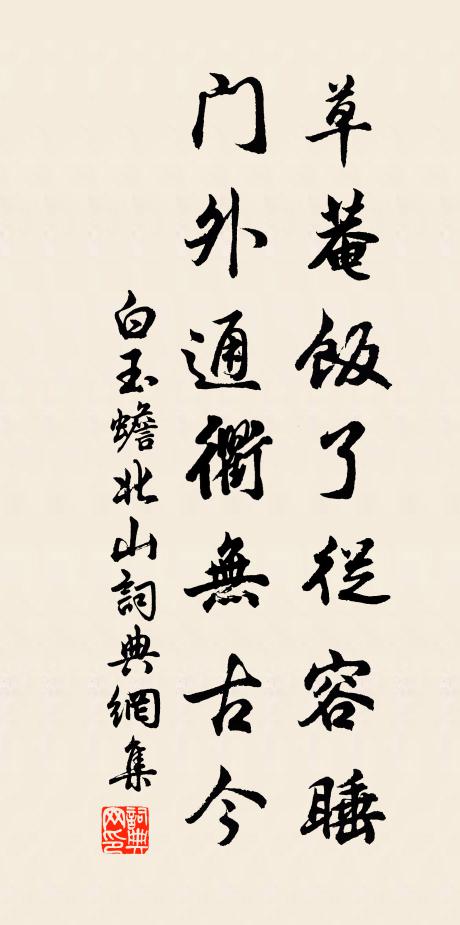 草菴飯了從容睡
門外通衢無古今
白玉蟾北山詞典網集
詞典網印